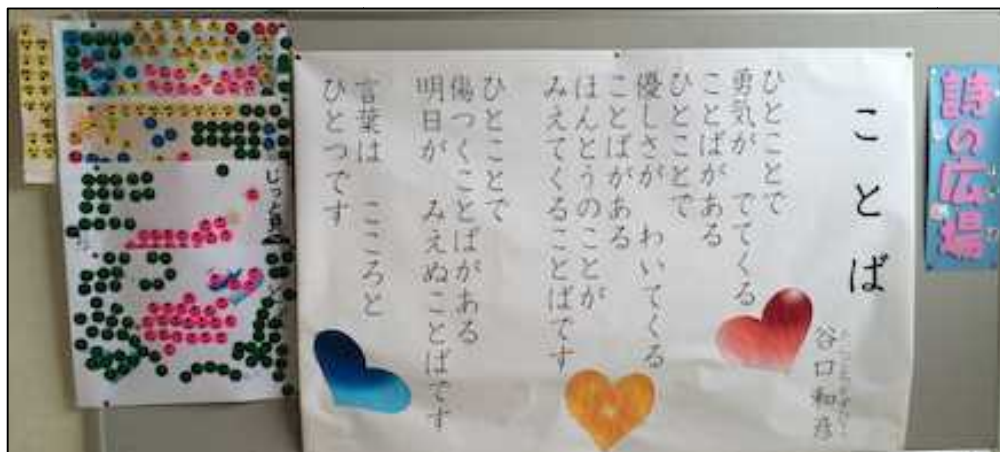 詩の広場
ことば
谷口和彦
ひとことで
勇気が　でてくる
ことばがある
ひとことで
優しさが　わいてくる
ことばがある
ほんとうのことが
みえてくることばです
ひとことで
傷つくことばがある
明日が　みえぬことばです
言葉は　こころと
ひとつです